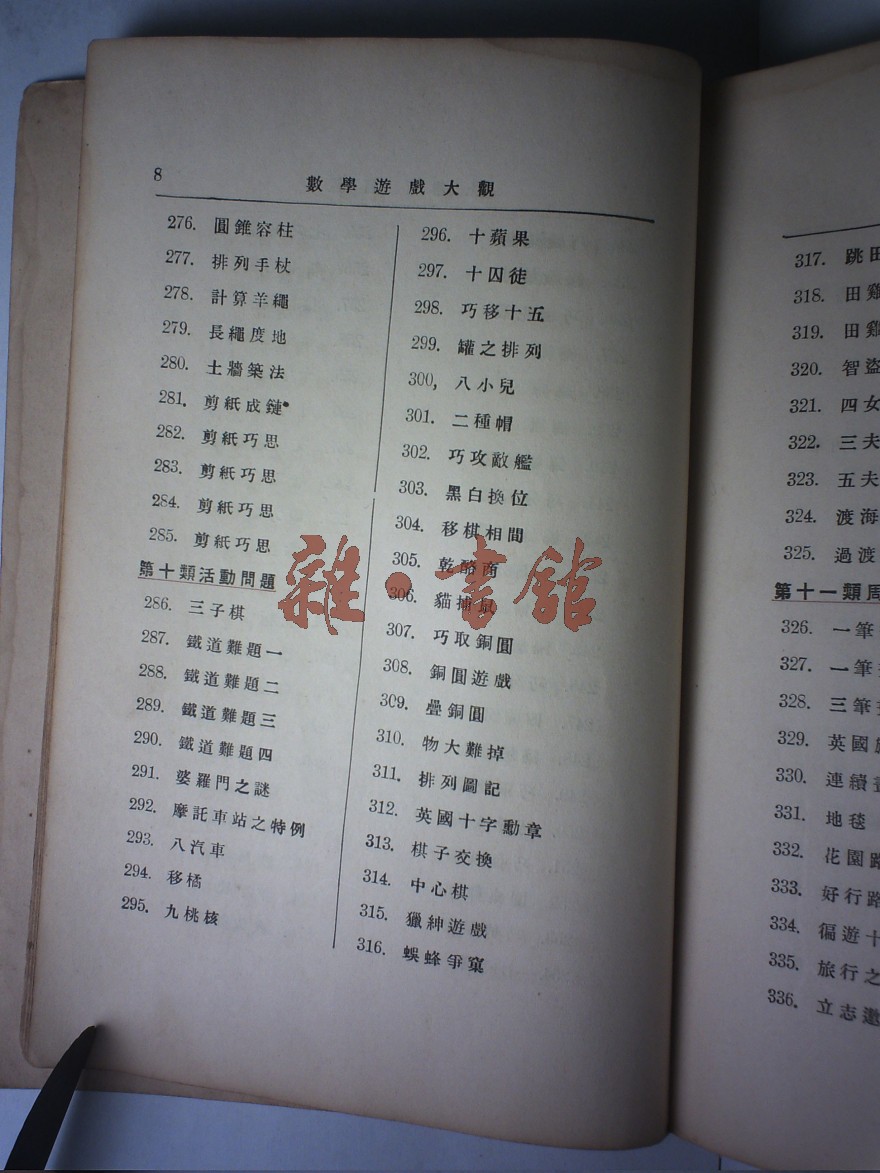 8
數學遊戲大觀
276. 圓錐容柱
277. 排列手杖
278. 計算羊繩
279. 長繩度地
280. 土牆築法
281. 剪紙成鏈
282. 剪紙巧思
283. 剪紙巧思
284. 剪紙巧思
285. 剪紙巧思
第十類活動問題
286. 三子棋
287. 鐵道難題一
288. 鐵道難題二
289. 鐵道難題三
290. 鐵道難題四
291. 婆羅門之謎
292. 摩託車站之特例
293. 八汽車
294. 移橘
295. 九桃核
296. 十蘋果
297. 十囚徒
298. 巧移十五
299. 罐之排列
300, 八小兒
301. 二種帽
302. 巧攻敵艦
303. 黑白換位
304. 移棋相間
305. 乾酪商
306. 貓捕鼠
307. 巧取銅圓
308. 銅圓遊戲
309. 疊銅圓
310. 物大難掉
311. 排列圖記
312. 英國十字勳章
313. 棋子交換
314. 中心棋
315. 獵紳遊戲
316. 蜈蜂爭窠
雜·書館
317. 跳田
318. 田雞
319. 田雞
320. 智盜
321. 四女
322. 三夫
323. 五夫
324. 渡海
325. 過渡
第十一類周
326. 一筆
327. 一筆
328. 三筆
329. 英國
330. 連續
331. 地毯
332. 花園路
333. 好行路
334. 徧遊十
335. 旅行之
336. 立志邀